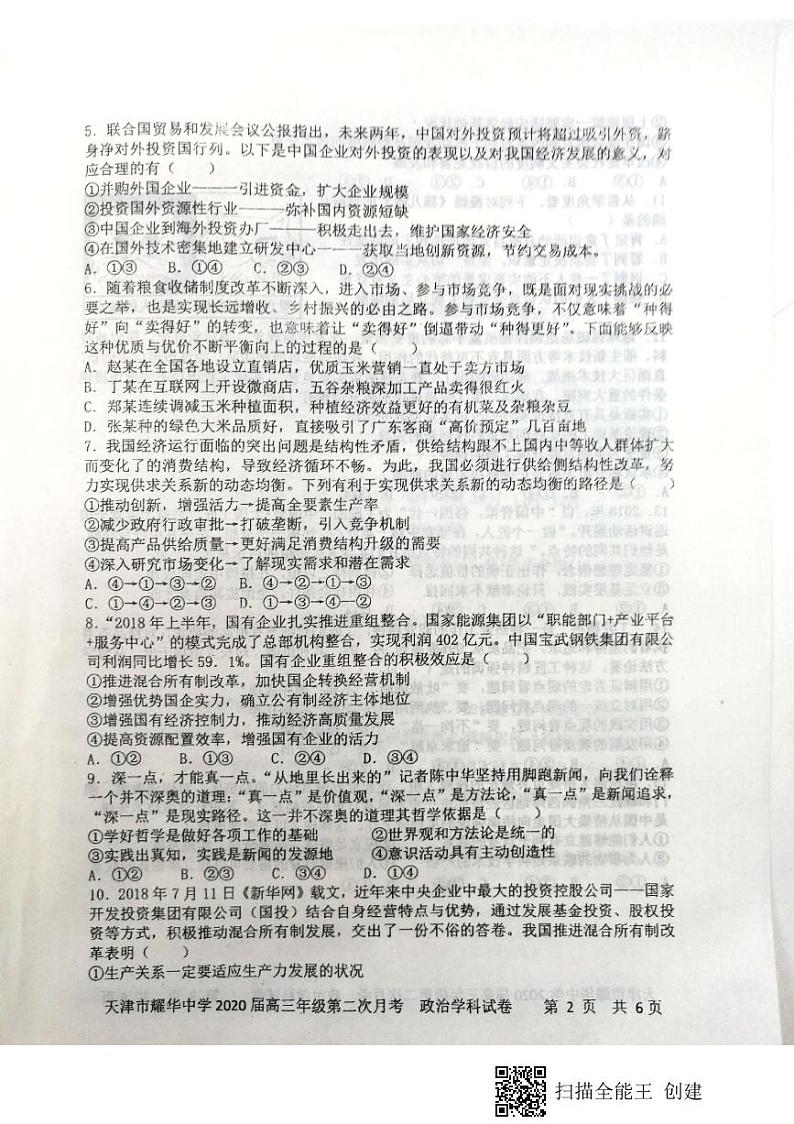 5. 联合国贸易和发展会议公报指出，未来两年，中国对外投资预计将超过吸引外资，跻
身净对外投资国行列。以下是中国企业对外投资的表现以及对我国经济发展的意义，对
应合理的有（　　）
①并购外国企业————引进资金，扩大企业规模
②投资国外资源性行业————弥补国内资源短缺
③中国企业到海外投资办厂————积极走出去，维护国家经济安全
④在国外技术密集地建立研发中心————获取当地创新资源，节约交易成本。
A. ①③　B. ①④　C. ②③　D. ②④
6. 随着粮食收储制度改革不断深入，进入市场、参与市场竞争，既是面对现实挑战的必
要之举，也是实现长远增收、乡村振兴的必由之路。参与市场竞争，不仅意味着“种得
好”向“卖得好”的转变，也意味着让“卖得好”倒逼带动“种得更好”，下面能够反映
这种优质与优价不断平衡向上的过程的是（　　）
A. 赵某在全国各地设立直销店，优质玉米营销一直处于卖方市场
B. 丁某在互联网上开设微商店，五谷杂粮深加工产品卖得很红火
C. 郑某连续调减玉米种植面积，种植经济效益更好的有机菜及杂粮杂豆
D. 张某种的绿色大米品质好，直接吸引了广东客商“高价预定”几百亩地
7. 我国经济运行面临的突出问题是结构性矛盾，供给结构跟不上国内中等收人群体扩大
而变化了的消费结构，导致经济循环不畅。为此，我国必须进行供给侧结构性改革，努
力实现供求关系新的动态均衡。下列有利于实现供求关系新的动态均衡的路径是（　　）
①推动创新，增强活力→提高全要素生产率
②减少政府行政审批→打破垄断，引入竞争机制
③提高产品供给质量→更好满足消费结构升级的需要
④深入研究市场变化→了解现实需求和潜在需求
A. ④→①→③→②　B. ④→②→①→③
C. ①→④→②→③　D. ①→③→④—②
8.“2018年上半年，国有企业扎实推进重组整合。国家能源集团以“职能部门+产业平台
+服务中心”的模式完成了总部机构整合，实现利润402亿元。中国宝武钢铁集团有限公
司利润同比增长59. 1%。国有企业重组整合的积极效应是（　　）
①推进混合所有制改革，加快国企转换经营机制
②增强优势国企实力，确立公有制经济主体地位
③增强国有经济控制力，推动经济高质量发展
④提高资源配置效率，增强国有企业的活力
A. ①②　B. ①③　C. ②④　D. ③④
9. 深一点，才能真一点。“从地里长出来的”记者陈中华坚持用脚跑新闻，向我们诠释
一个并不深奥的道理：“真一点”是价值观，“深一点”是方法论，“真一点”是新闻追求，
“深一点”是现实路径。这一并不深奥的道理其哲学依据是（　　）
①学好哲学是做好各项工作的基础　②世界观和方法论是统一的
③实践出真知，实践是新闻的发源地　④意识活动具有主动创造性
A. ①②　B. ②③　C. ③④　D. ①④
10. 2018年7月11日《新华网》载文，近年来中央企业中最大的投资控股公司——国家
开发投资集团有限公司（国投）结合自身经营特点与优势，通过发展基金投资、股权投
资等方式，积极推动混合所有制发展，交出了一份不俗的答卷。我国推进混合所有制改
革表明（　　）
①生产关系一定要适应生产力发展的状况
天津市耀华中学2020届高三年级第二次月考　政治学科试卷　第 2 页　共 6 页
扫描全能王 创建